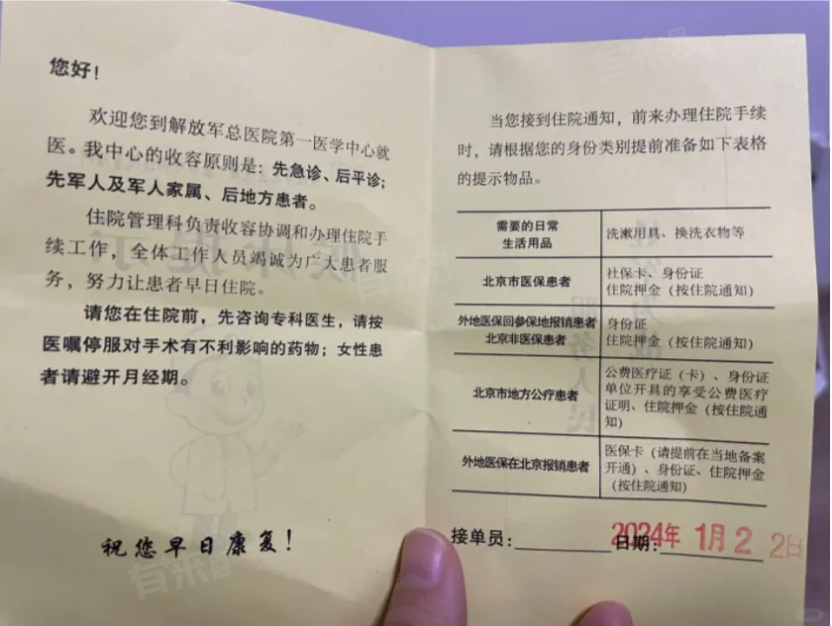 您好！
欢迎您到解放军总医院第一医学中心就
医。我中心的收容原则是：先急诊、后平诊；
先军人及军人家属、后地方患者。
住院管理科负责收容协调和办理住院手
续工作，全体工作人员竭诚为广大患者服
务，努力让患者早日住院。
请您在住院前，先咨询专科医生，请按
医嘱停服对手术有不利影响的药物；女性患
者请避开月经期。
祝您早日康复！
当您接到住院通知，前来办理住院手续
时，请根据您的身份类别提前准备如下表格
的提示物品。
需要的日常
生活用品
洗漱用具、换洗衣物等
北京市医保患者
社保卡、身份证
住院押金（按住院通知）
外地医保回参保地报销患者
北京非医保患者
身份证
住院押金（按住院通知）
北京市地方公疗患者
公费医疗证（卡）、身份证
单位开具的享受公费医疗
证明、住院押金（按住院通
知）
外地医保在北京报销患者
医保卡（请提前在当地备案
开通）、身份证、住院押金
（按住院通知）
接单员：日期：2024年 1月2 2日